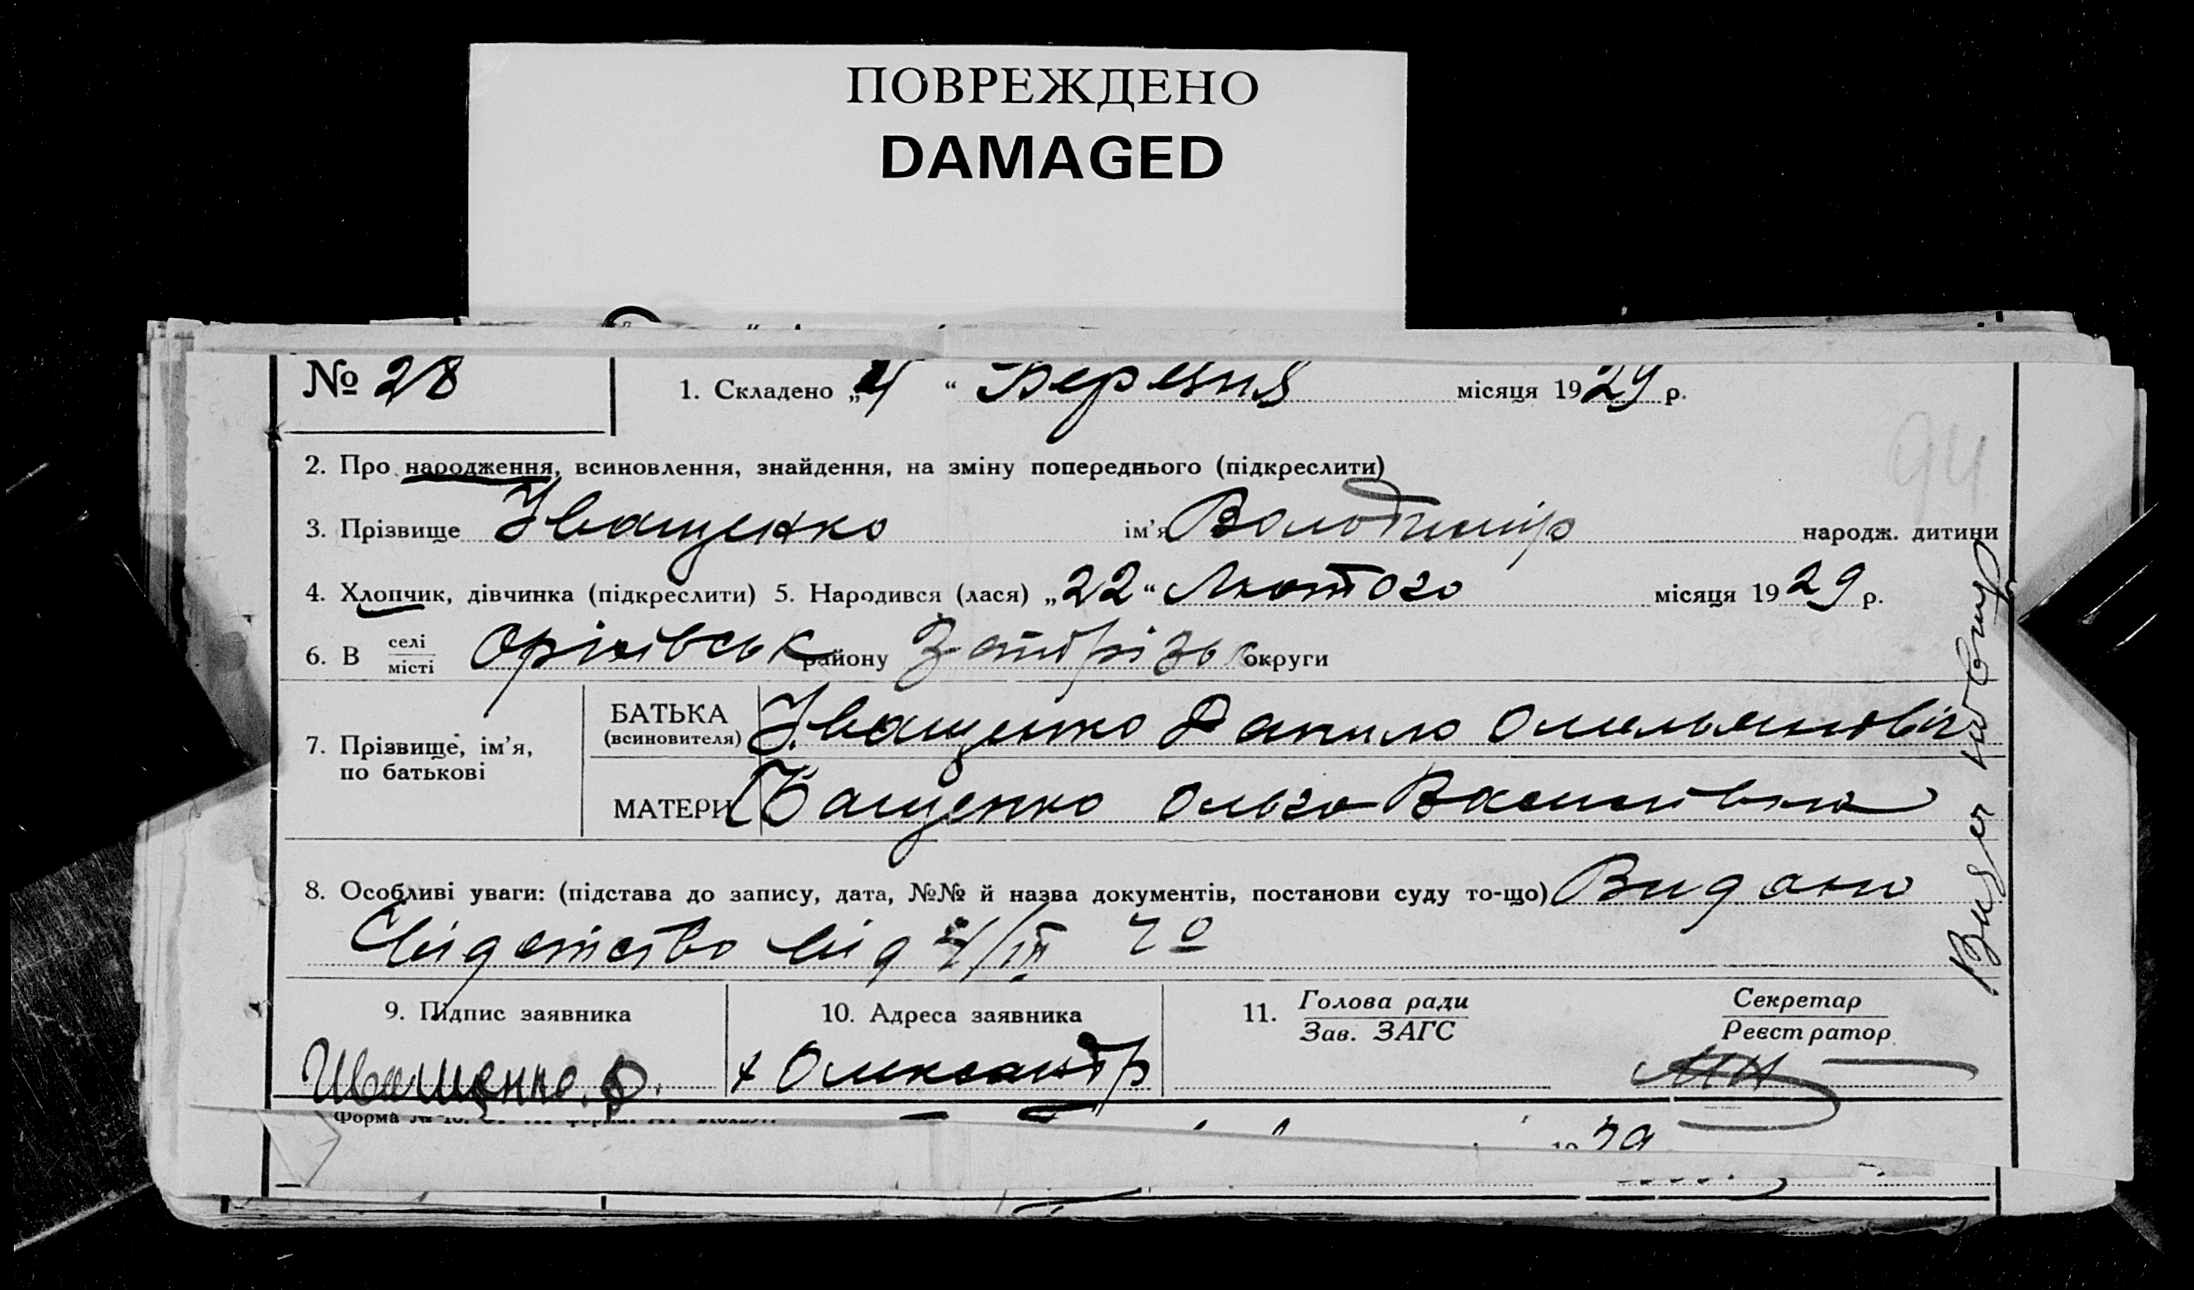 ПОВРЕЖДЕНО
DAMAGED
№ 28
1. Складено „4“ Березня місяця 1929 р.
94
2. Про народження, всиновлення, знайдення, на зміну попереднього (підкреслити)
3. Прізвище Іващенко ім’я Володимір народж. дитини
4. Хлопчик, дівчинка (підкреслити) 5. Народився (лася) „22“ Лютого місяця 1929 р.
6. В селі/місті Оріхівськ району Запорізьк округи
7. Прізвище, ім’я, по батькові
БАТЬКА (всиновителя) Іващенко Данило Омельянович
МАТЕРИ Іващенко Ольга Василівна
8. Особливі уваги: (підстава до запису, дата, №№ й назва документів, постанови суду то-що) Видано
свідотство від 4/III
9. Підпис заявника
Иващенко. Д.
10. Адреса заявника
х Олександр
11. Голова ради
Зав. ЗАГС
Секретар
Реєстратор
Форма №
29